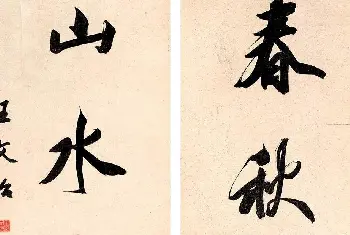 春秋
山水
王文治